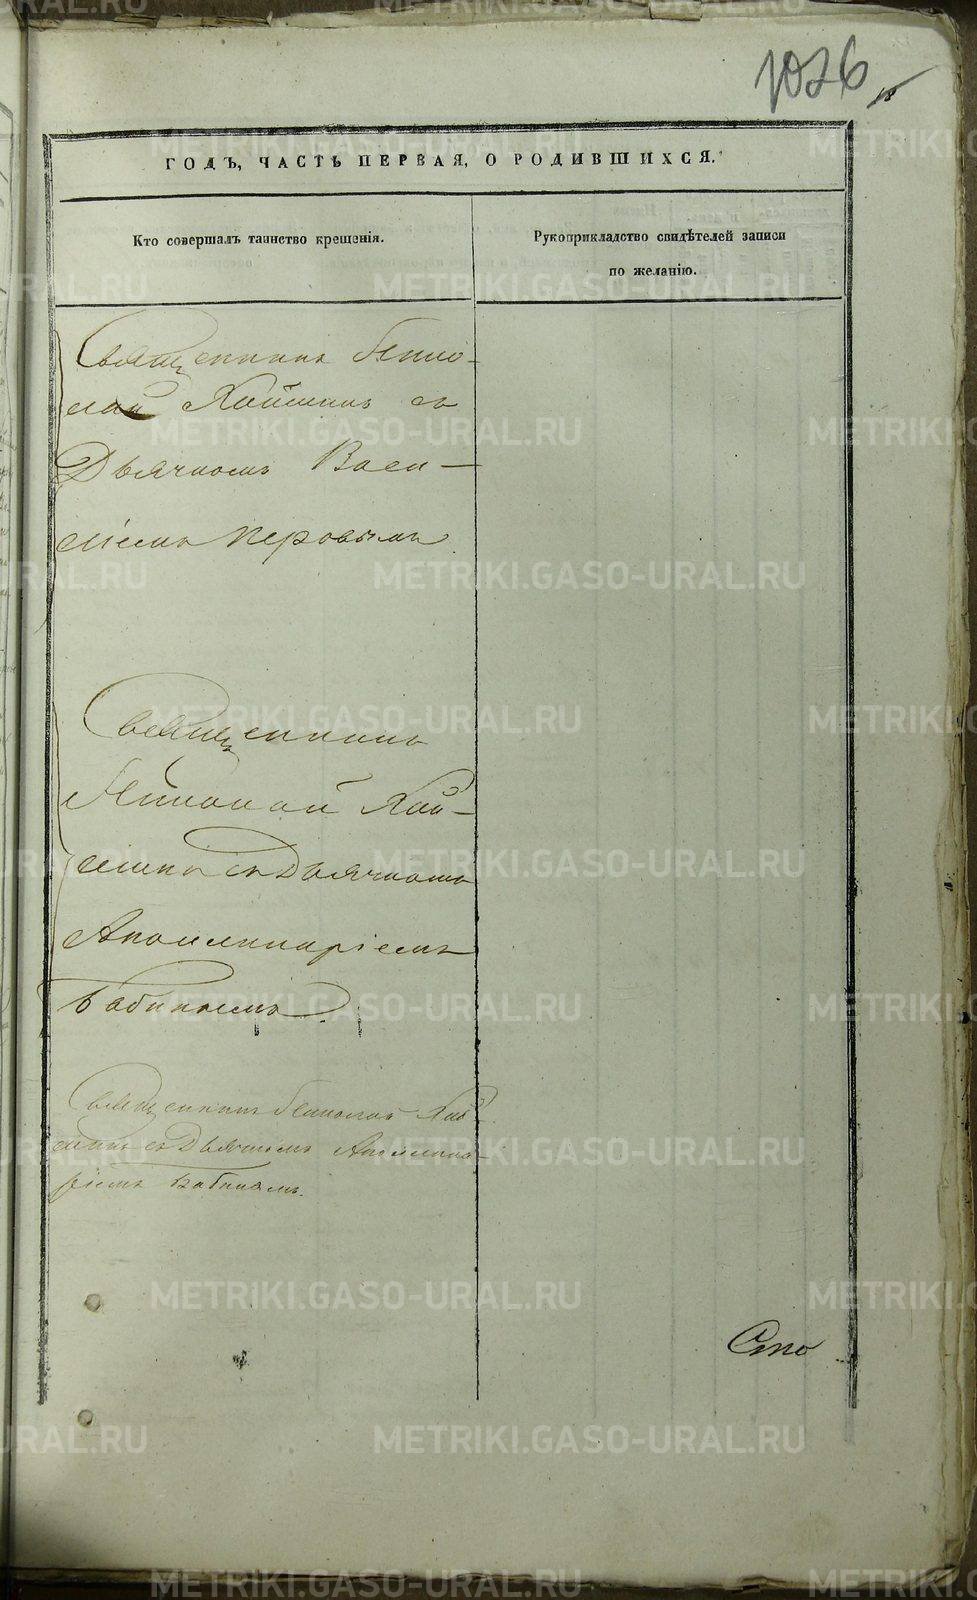 1026
ГОДЪ, ЧАСТЬ ПЕРВАЯ, О РОДИВШИХСЯ.
Кто совершалъ таинство крещенія.
Рукоприкладство свидѣтелей записи
по желанію.
Священникъ Нико-
лай съ
Дьячкомъ Васи-
ліемъ Перовымъ
Священникъ
Николай
съ Дьячкомъ
Аполлинаріемъ
Бабинымъ
Священникъ Николай
съ Дьячкомъ Аполлина-
ріемъ Бабинымъ.
METRIKI.GASO-URAL.RU